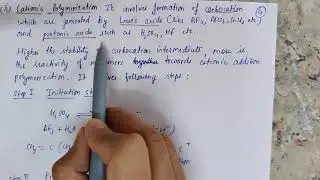 (ii) Cationic Polymerisation It involves formation of carbocation (9)
which are generated by Lewis acids (like BF3, AlCl3, SnCl4 etc)
and protonic acids such as H2SO4, HF etc.
Higher the stability carbocation intermediate, more is
the reactivity of monomers towards cationic addition
polymerization. It involves following steps:
Step I Initiation st
H2SO4
BF3 + H2
CH2 = C (CH3